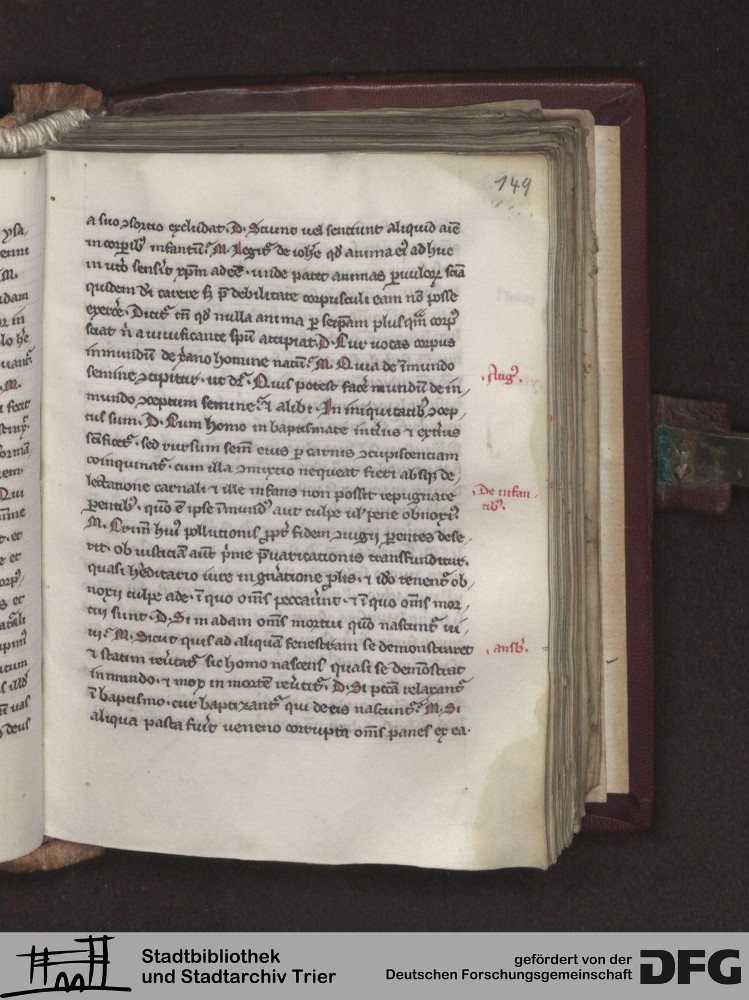 149
a suo ↄsortio excludat. D. Sciunt uel sentiunt aliquid aīe
in corpib᷒ infantū? M. Legit᷑ de ioh̄e qd̓ anima ei᷒ adhuc
in ut̓o senſ̓it xp̄m adeē. unde patet animas puuloꝝ sciā
quidem dī carere s; p̄ debilitate corpusculi eam nō posse
exercere. Dicit᷑ tn̄ qd̓ nulla anima per seipsam plusqm̄ corp᷒
sciat n̄ a uiuificante spū accipiat. D. Cur uocas corpus
inmundū de xp̄iano homine natū? M. Quia de īmundo
semine ↄcipitur. ut dr̄. Quis potest face mundū de in/
mundo ↄceptum semine? ⁊ alibi. In iniquitatib᷒ ↄcep/
tus sum. D. Cum homo in baptismate int̓ius ⁊ ext̓ius
sc̄ificet᷑. sed rursum sem̄ eius per carnis ↄcupiscentiam
coinquinat᷑. cum illa ↄmixtio nequeat fieri absq; de/
lectatione carnali ⁊ ille infans non possit repugnare
parentib᷒. quō ē ipse īmund᷒ aut culpe ul̓ pene obnoxi᷒?
M. Crim̄ hui᷒ pollutionis ꝓpt̓ fidem ↄiugii parentes dese/
rit. ob iusticiā aut̄ prime p̄uaricationis transfunditur.
quasi hereditario iure in gn̄atione ꝓlis. ⁊ iō tenent᷑ ob/
noxii culpe ade. ī quo om̄s peccauerunt. ⁊ ī quo om̄s mor/
tui sunt. D. Si in adam om̄s mortui quō nascunt᷑ ui/
ui? M. Sicut quis ad aliquam fenestram se demonstraret
⁊ statim reuertat᷑ sic homo nascens quasi se demōstrat
in mundo. ⁊ mox in mortē reuertit᷑. D. Si pc̄cā relaxant᷑
ī baptismo. cur baptizant᷑ qui de eis nascunt᷑? M. Si
aliqua pasta fuerit ueneno corrupta om̄s panes ex ea.
Aug᷒.
De infan/
tib᷒.
ansł.
Stadtbibliothek
und Stadtarchiv Trier
gefördert von der
Deutschen Forschungsgemeinschaft
DFG